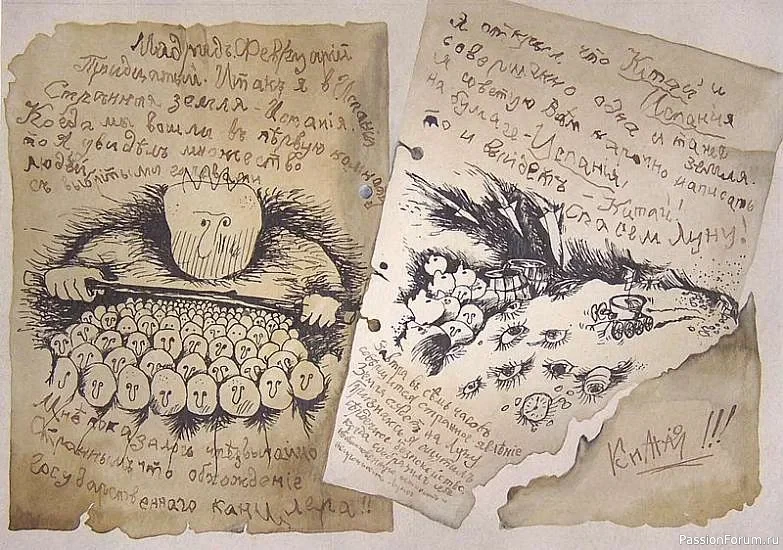 Мадридъ. Февруарий
Тридцатый. Итакъ я в Испании
Странная земля - Испанiя.
Когда мы вошли въ първую комнату
то я увидѣлъ множество
людей
съ выбритыми головами
Мнѣ показалось чрѣзвычайно
странным что обхождение
государственнаго канцлера!!
Я открыл, что Китай и
Испания
совершенно одна и таже
земля.
я советую Вам нарочно написать
на бумаге - Испанiя,
то и выйдетъ - Китай!!
Спасем Луну!
Завтра въ семь часовъ
совершится странное явление
Земля сядет на Луну
Признаюсь я
безпокойство
когда
Китай!!!
PassionForum.ru